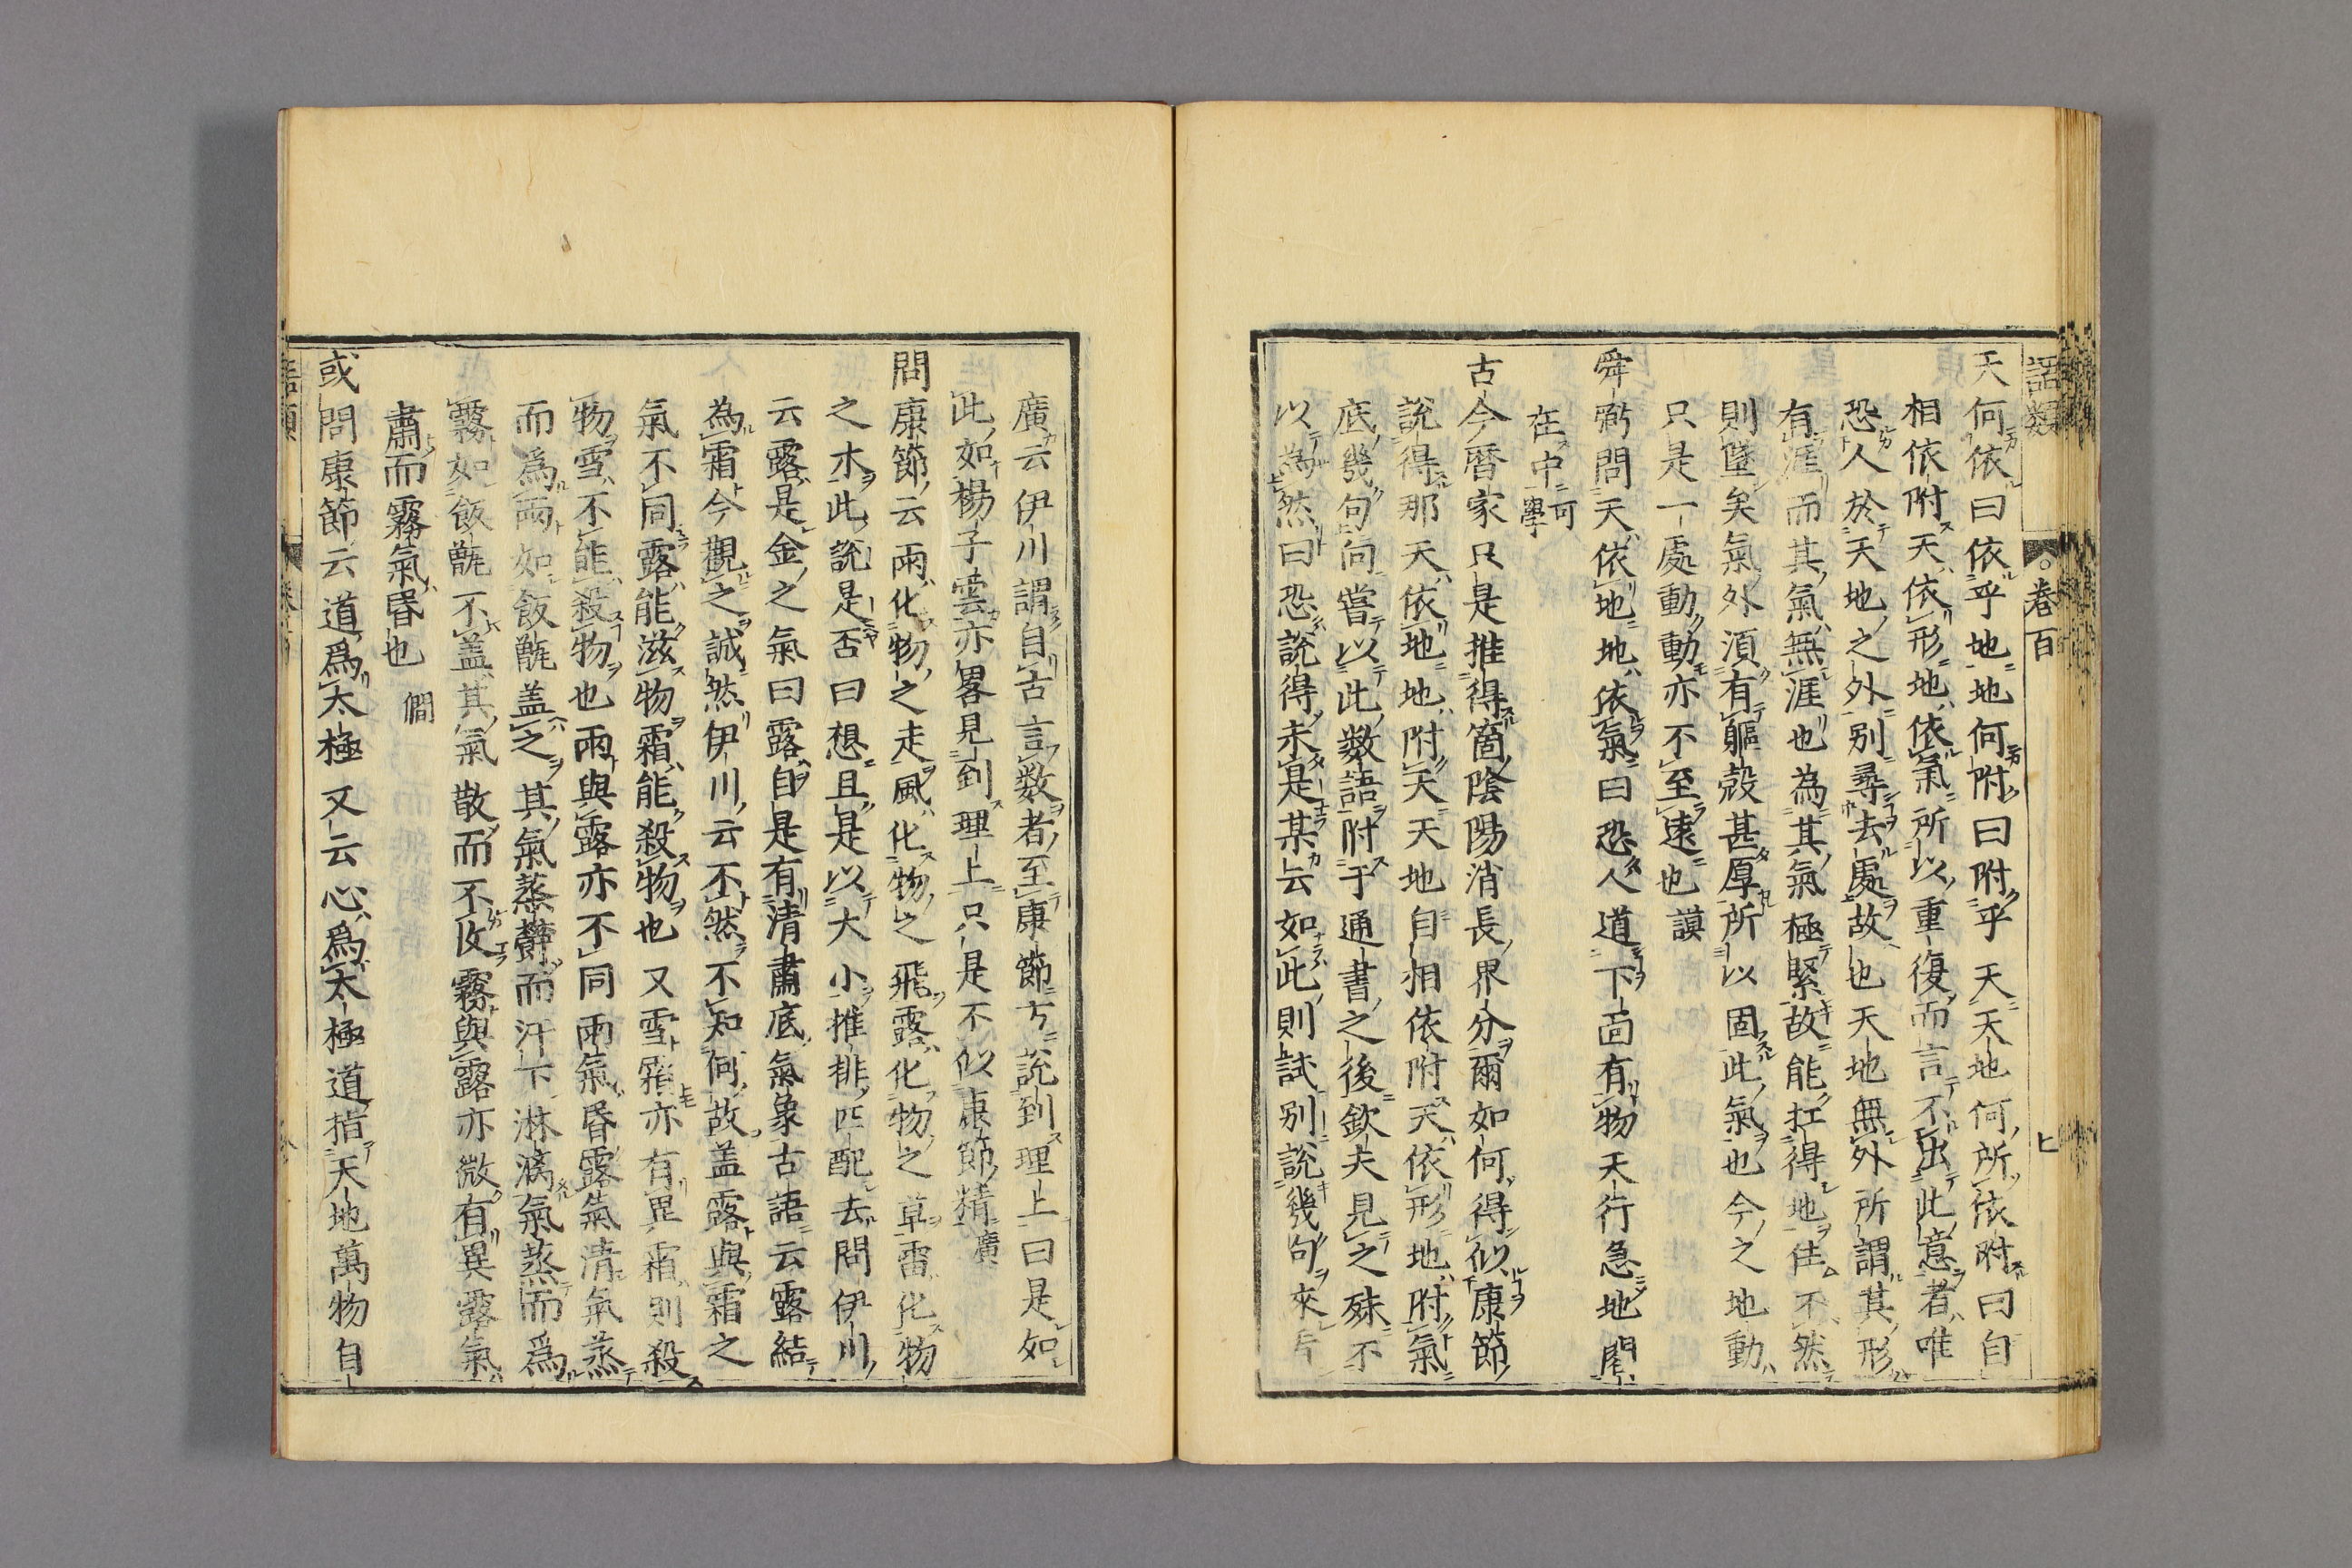 語類 卷百 七
天何依曰依乎地地何附曰附乎天天地何所依附曰自
相依附天依形地依氣所以重復而言不出此意者唯
恐人於天地之外別尋去處故也天地無外所謂其形
有涯而其氣無涯也為其氣極緊故能扛得地住不然
則墜矣氣外須有軀殼甚厚所以固此氣也今之地動
只是一處動動亦不至遠也謨
舜弼問天依地地依氣曰恐人道下面有物天行急地閣
在中可學
古今曆家只是推得箇陰陽消長界分爾如何得似康節
說得那天依地地附天天地自相依附天依形地附氣
底幾句向嘗以此數語附于通書之後欽夫見之殊不
以為然曰恐說得未是某云如此則試別說幾句來看
廣云伊川謂自古言數者至康節方說到理上曰是如
此如楊子雲亦畧見到理上只是不似康節精廣
問康節云雨化物之走風化物之飛露化物之草雷化物
之木此說是否曰想且是以大小推排匹配去問伊川
云露是金之氣曰露自是有清肅底氣象古語云露結
為霜今觀之誠然伊川云不然不知何故盖露與霜之
氣不同露能滋物霜能殺物也又雪霜亦有異霜則殺
物雪不能殺物也雨與露亦不同雨氣昏露氣清氣蒸
而爲雨如飯甑盖之其氣蒸鬱而汗下淋漓氣蒸而爲
霧如飯甑不盖其氣散而不收霧與露亦微有異露氣
肅而霧氣昏也 僩
或問康節云道爲太極又云心爲太極道指天地萬物自